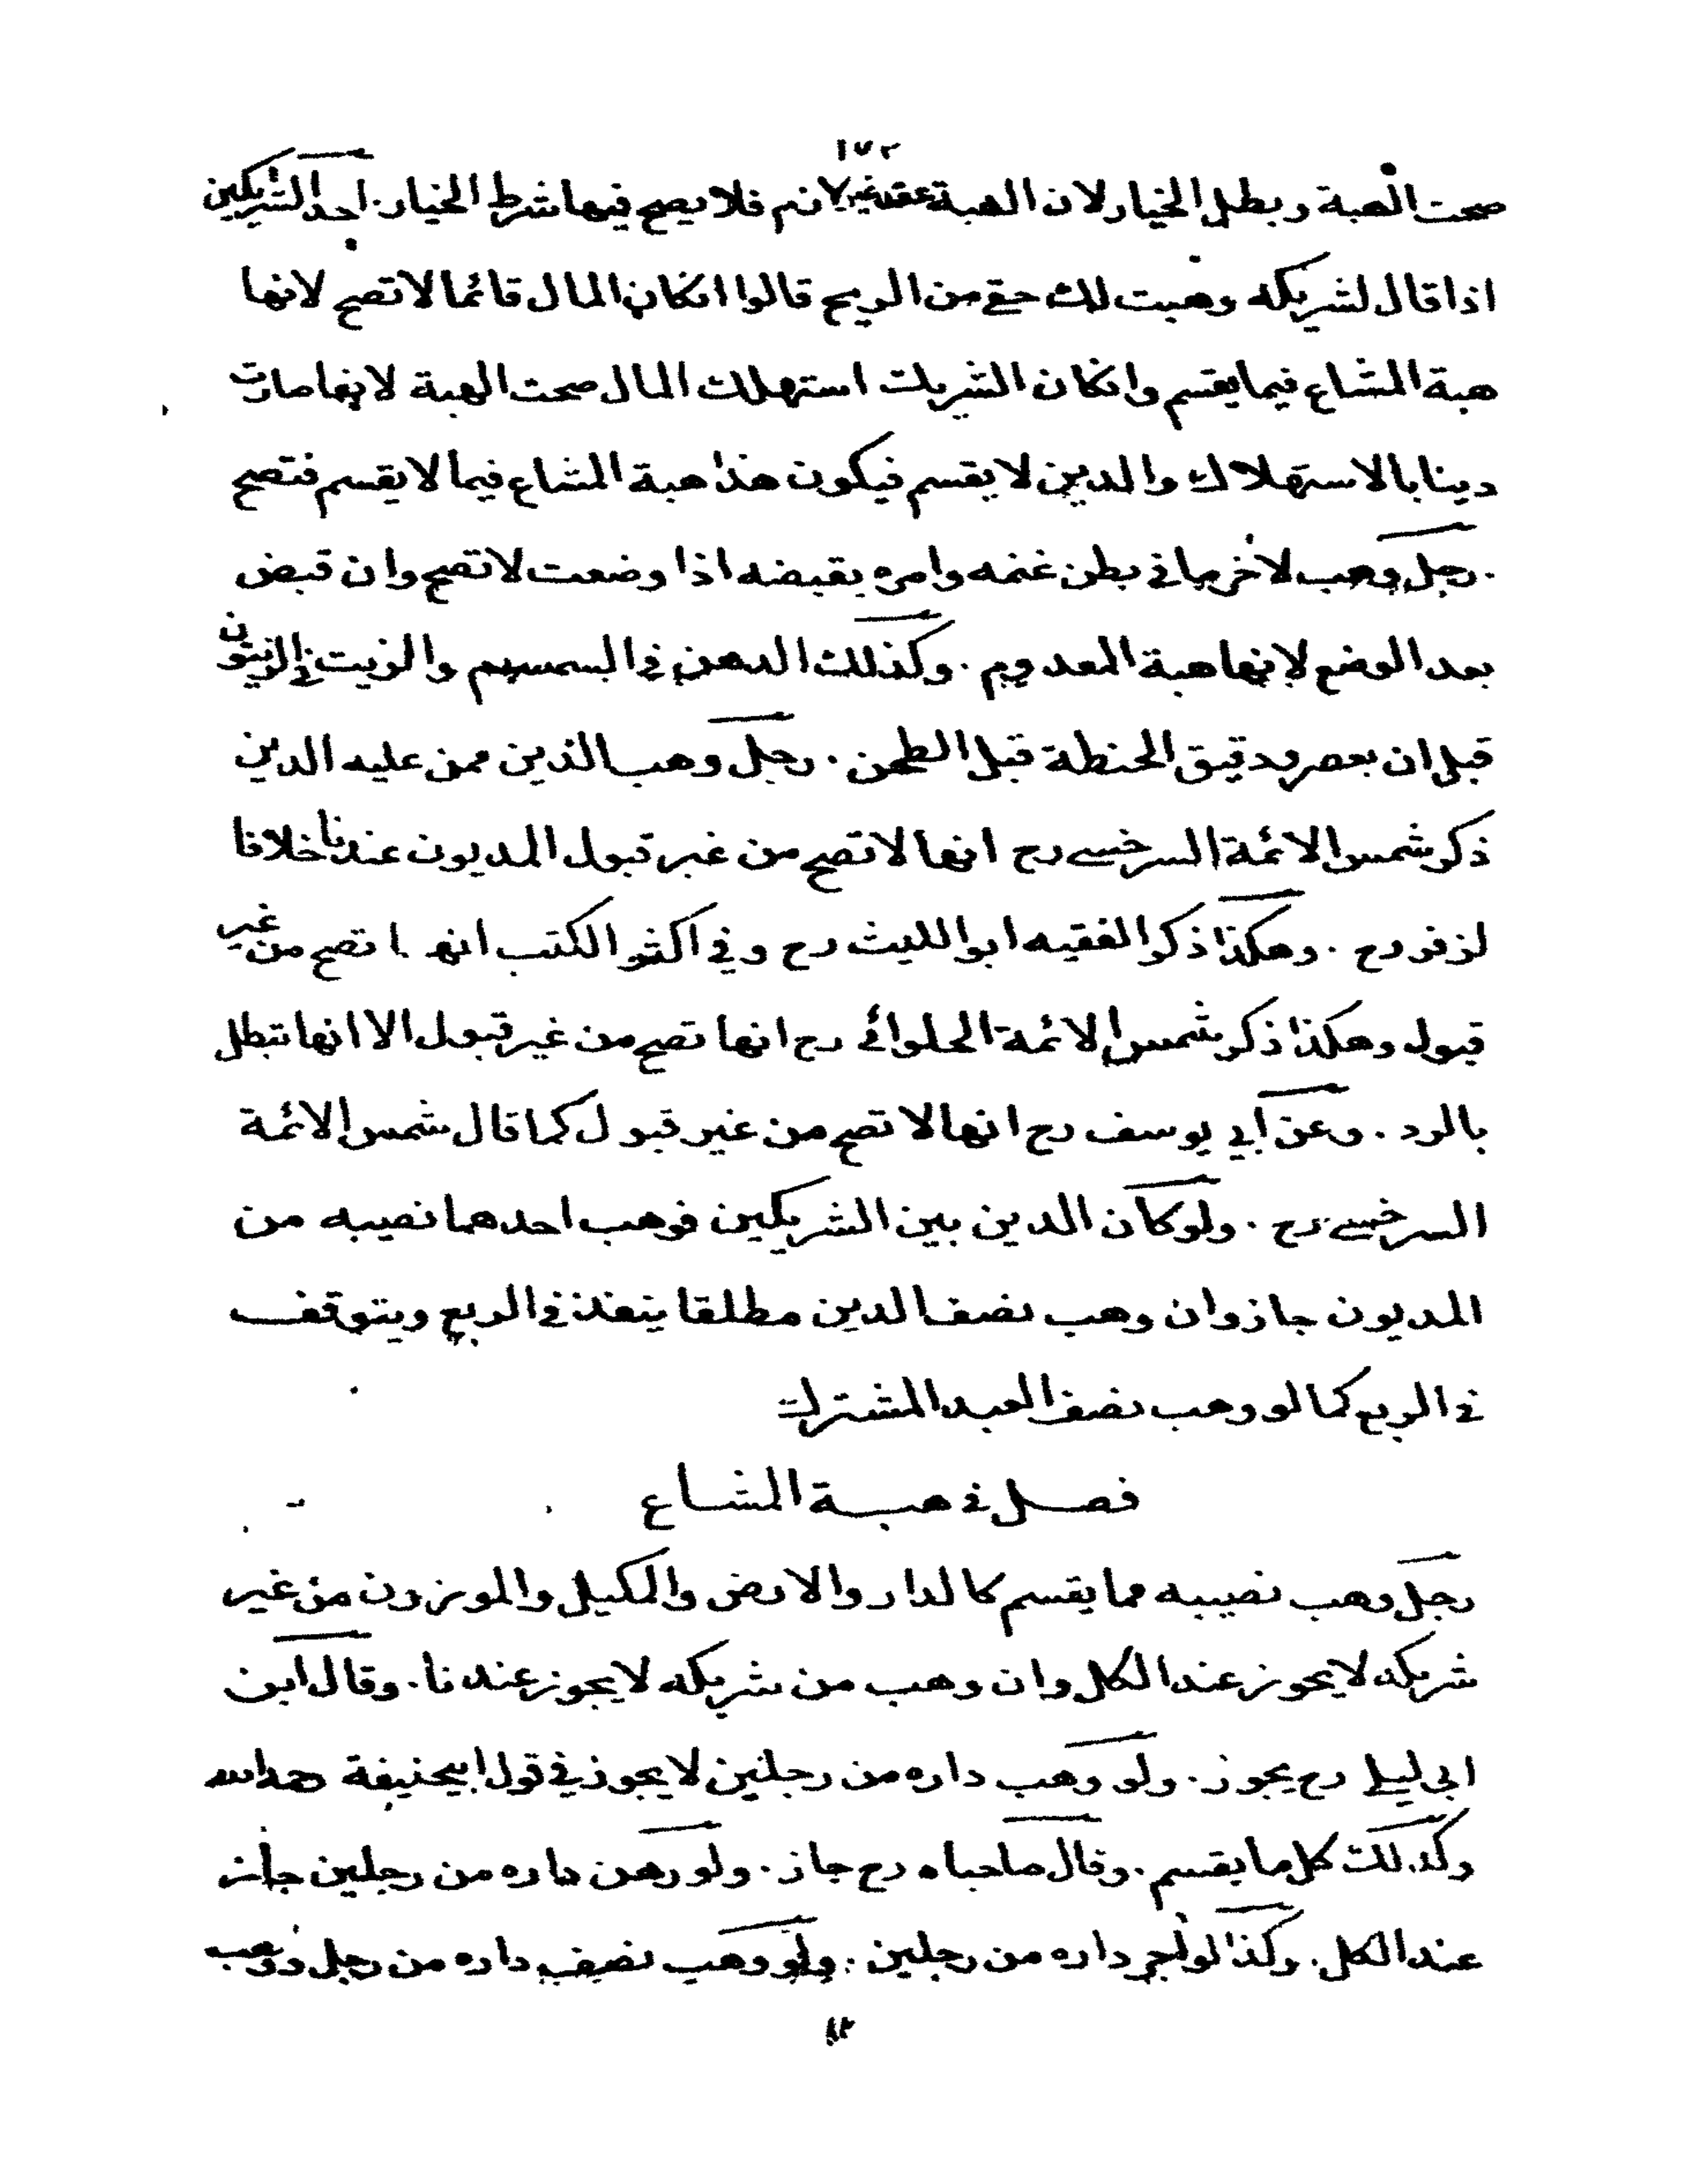 ١٧٢
صحت الهبة وبطل الخيار لان الهبة عقد غير لازم فلا يصح فيها شرط الخيار. احد الشريكين
اذا قال لشريكه وهبت لك حقي من الربح قالوا انكان المال قائما لا تصح لانها
هبة المشاع فيما يقسم وانكان الشريك استهلك المال صحت الهبة لانها صارت
دينا بالاستهلاك والدين لا يقسم فيكون هذا هبة المشاع فيما لا يقسم فتصح
. رجل وهب لاخر ما في بطن غنمه وامره بقبضه اذا وضعت لا تصح وان قبض
بعد الوضع لانها هبة المعدوم . وكذلك الدهن في السمسم والزيت في الزيتون
قبل ان يعصر ودقيق الحنطة قبل الطحن . رجل وهب الدين ممن عليه الدين
ذكر شمس الائمة السرخسي رح انها لا تصح من غير قبول المديون عندنا خلافا
لزفر رح . وهكذا ذكر الفقيه ابو الليث رح وفي اكثر الكتب انها تصح من غير
قبول وهكذا ذكر شمس الائمة الحلوائي رح انها تصح من غير قبول الا انها تبطل
بالرد . وعن أبي يوسف رح انها لا تصح من غير قبول كما قال شمس الائمة
السرخسي رح . ولو كان الدين بين الشريكين فوهب احدهما نصيبه من
المديون جاز وان وهب نصف الدين مطلقا ينفذ في الربع ويتوقف
في الربع كما لو وهب نصف العبد المشترك
فصل في هبة المشاع
رجل وهب نصيبه مما يقسم كالدار والارض والمكيل والموزون من غير
شريكه لا يجوز عند الكل وان وهب من شريكه لا يجوز عندنا . وقال ابن
ابي ليلى رح يجوز . ولو وهب داره من رجلين لا يجوز في قول ابيحنيفة رحمه الله
وكذلك كل ما يقسم . وقال صاحباه رح جاز . ولو رهن داره من رجلين جاز
عند الكل . وكذا لو آجر داره من رجلين . ولو وهب نصف داره من رجل ووهب